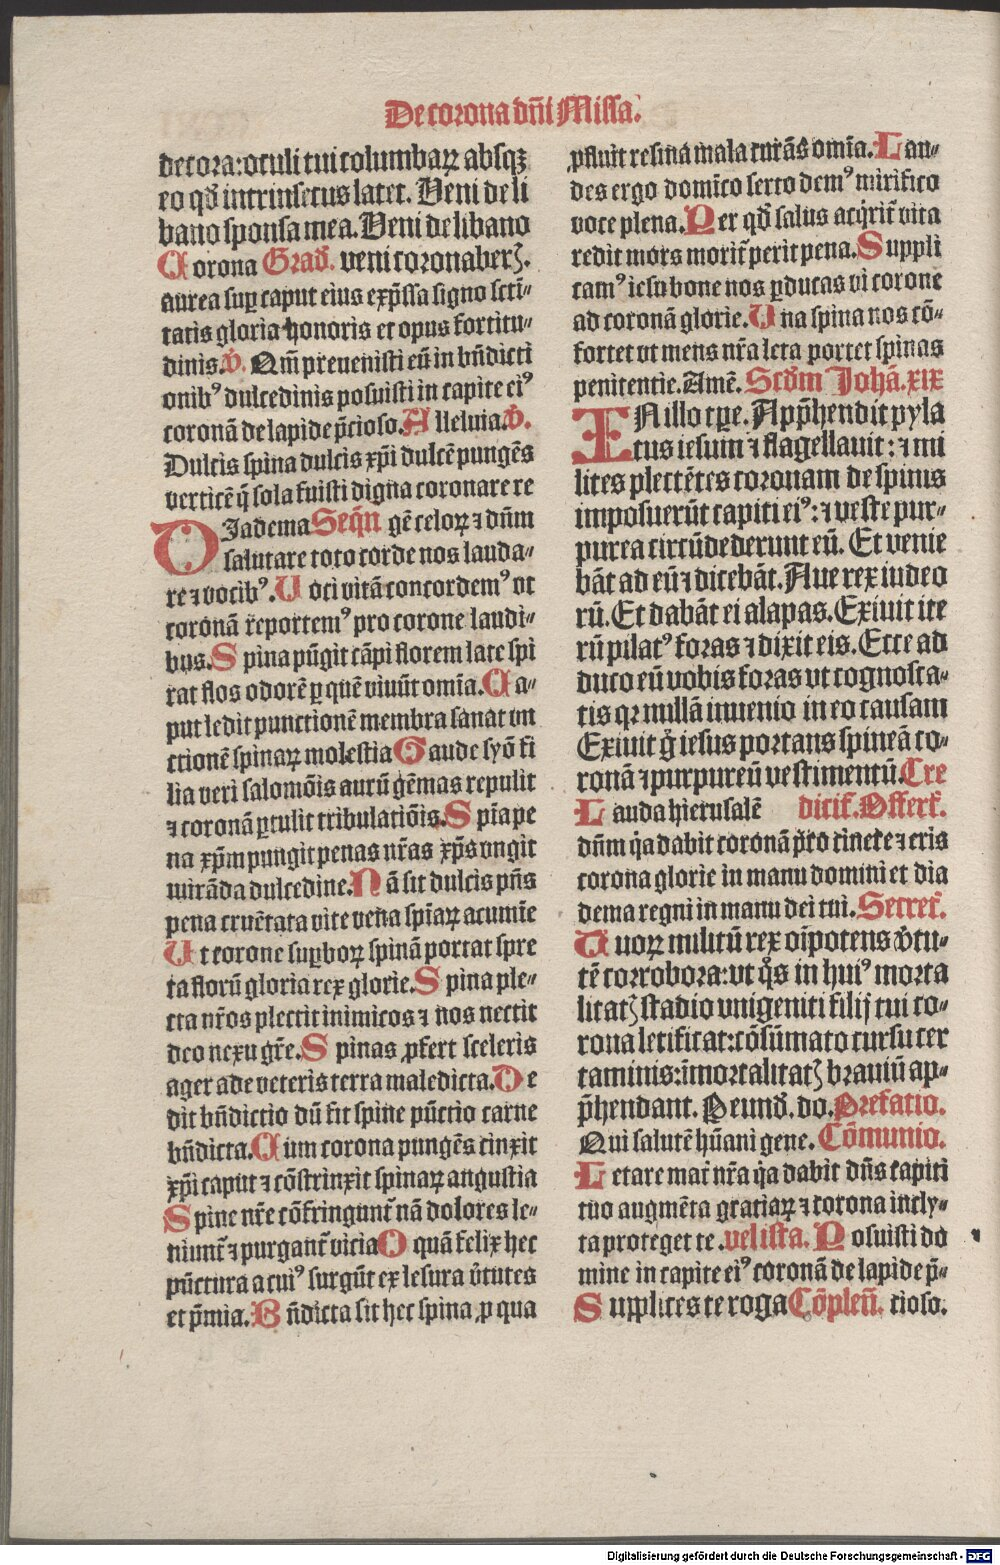 De corona dñi Missa.
decora: oculi tui columbaꝝ absqꝫ
eo qđ intrinsecus latet. Veni de li
bano sponsa mea. Veni de libano
Corona Graď. veni coronaberꝭ.
aurea suꝑ caput eius exp̃ssa signo scti-
tatis gloria honoris et opus fortitu-
dinis. v̓. Qm̃ preuenisti eũ in bñdicti
onibꝰ dulcedinis posuisti in capite eiꝰ
coronã de lapide p̃cioso. Alleluia. v̓.
Dulcis spina dulcis xp̃i dulcẽ pungẽs
verticẽ q̃ sola fuisti digna coronare re
Diadema Seq̃n gẽ celoꝝ ⁊ dñm
salutare toto corde nos lauda-
re ⁊ vocibꝰ. Uoci vitã concordemꝰ vt
coronã reportemꝰ pro corone laudi-
bus. Spina pũgit cãpi florem late spi
rat flos odorẽ ꝑ quẽ viuũt omĩa. Ca-
put ledit punctionẽ membra sanat vn
ctionẽ spinaꝝ molestia Gaude syõ fi
lia veri salomõis aurũ gẽmas repulit
⁊ coronã ꝑtulit tribulatiõis. Spĩa pe
na xp̃m pungit penas nr̃as xp̃s vngit
mirãda dulcedine. Nã sit dulcis pñs
pena cruẽtata vite vena spĩaꝝ acumĩe
Ut corone suꝑboꝝ spinã portat spre
ta florũ gloria rex glorie. Spina ple-
cta nr̃os plectit inimicos ⁊ nos nectit
deo nexu gr̃e. Spinas ꝓfert sceleris
ager ade veteris terra maledicta. De
dit bñdictio dũ fit spine pũctio carne
bñdicta. Cium corona pungẽs cinxit
xp̃i caput ⁊ cõstrinxit spinaꝝ angustia
Spine nr̃e cõfringunt̃ nã dolores le-
niunt̃ ⁊ purgant̃ vicia O quã felix hec
pũctura a cuiꝰ surgũt ex lesura v̓tutes
et p̃mia. Bñdicta sit hec spina ꝓ qua
ꝓfluit resina mala curãs omĩa. Lau-
des ergo domĩco serto demꝰ mirifico
voce plena. Per qđ salus acq̃rit̃ vita
redit mors morit̃ perit pena. Suppli
camꝰ iesu bone nos ꝑducas vi corone
ad coronã glorie. Una spina nos cõ-
fortet vt mens nr̃a leta portet spinas
penitentie. Amẽ. Scďm Johã. xix
IN illo tꝑe. App̃hendit pyla
tus iesum ⁊ flagellauit: ⁊ mi
lites plectẽtes coronam de spinis
imposuerũt capiti eiꝰ: ⁊ veste pur-
purea circũdederunt eũ. Et venie
bãt ad eũ ⁊ dicebãt. Aue rex iudeo
rũ. Et dabãt ei alapas. Exiuit ite
rũ pilatꝰ foras ⁊ dixit eis. Ecce ad
duco eũ vobis foras vt cognosca-
tis qꝛ nullã inuenio in eo causam
Exiuit g̊ iesus portans spineã co-
ronã ⁊ purpureũ vestimentũ. Cre
Lauda hierusalẽ dicit̃. Offert̃.
dñm q̃a dabit coronã ꝓ̃ cinere ⁊ eris
corona glorie in manu domini et dia
dema regni in manu dei tui. Secret̃.
Tuoꝝ militũ rex oĩpotens v̓tu-
tẽ corrobora: vt q̊s in huiꝰ morta
litatꝭ stadio vnigeniti filij tui co-
rona letificat: cõsũmato cursu cer
taminis: ĩmortalitatꝭ brauiũ ap-
p̃hendant. Per eunď. do. Prefatio.
Qui salutẽ hũani gene. Cõmunio.
Letare mat̃ nr̃a q̃a dabit dñs capiti
tuo augmẽta gratiaꝝ ⁊ corona incly-
ta proteget te. vel ista. Posuisti do
mine in capite eiꝰ coronã de lapide p̃-
Supplices te roga Cõpleñ. cioso.
Digitalisierung gefördert durch die Deutsche Forschungsgemeinschaft - DFG